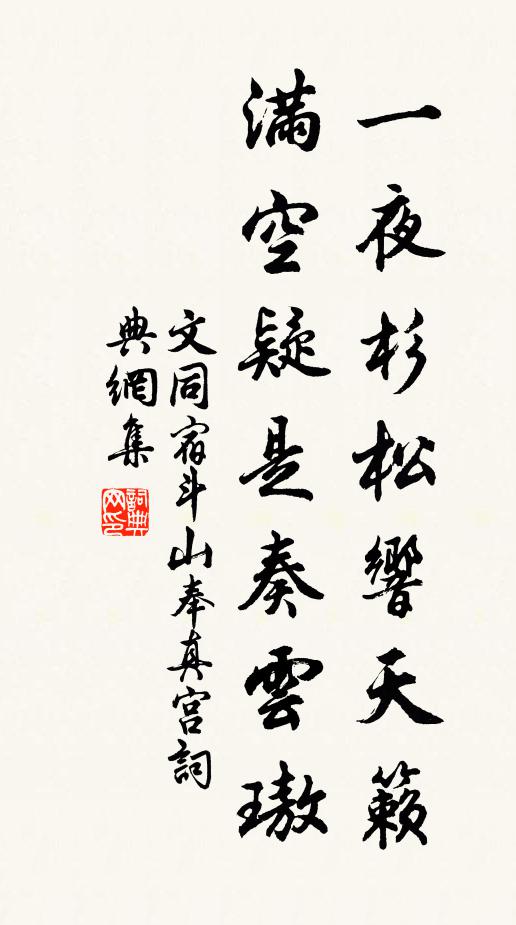 一夜杉松響天籟
滿空疑是奏雲璈
文同宿斗山奉真宮詞
典網集
詞典网印